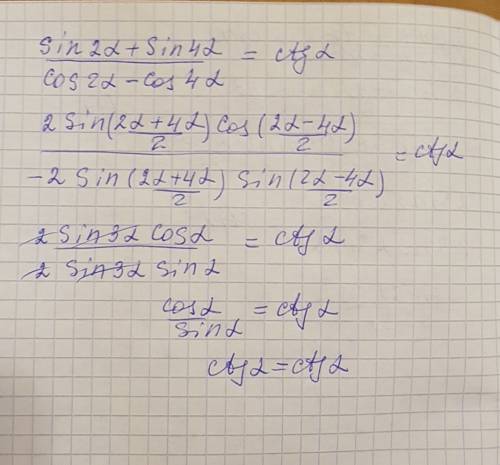 (sin2α + sin4α) / (cos2α − cos4α) = ctgα
(2 sin((2α+4α)/2) cos((2α−4α)/2)) / (−2 sin((2α+4α)/2) sin((2α−4α)/2)) = ctgα
(2 sin3α cosα) / (2 sin3α sinα) = ctgα
cosα / sinα = ctgα
ctgα = ctgα